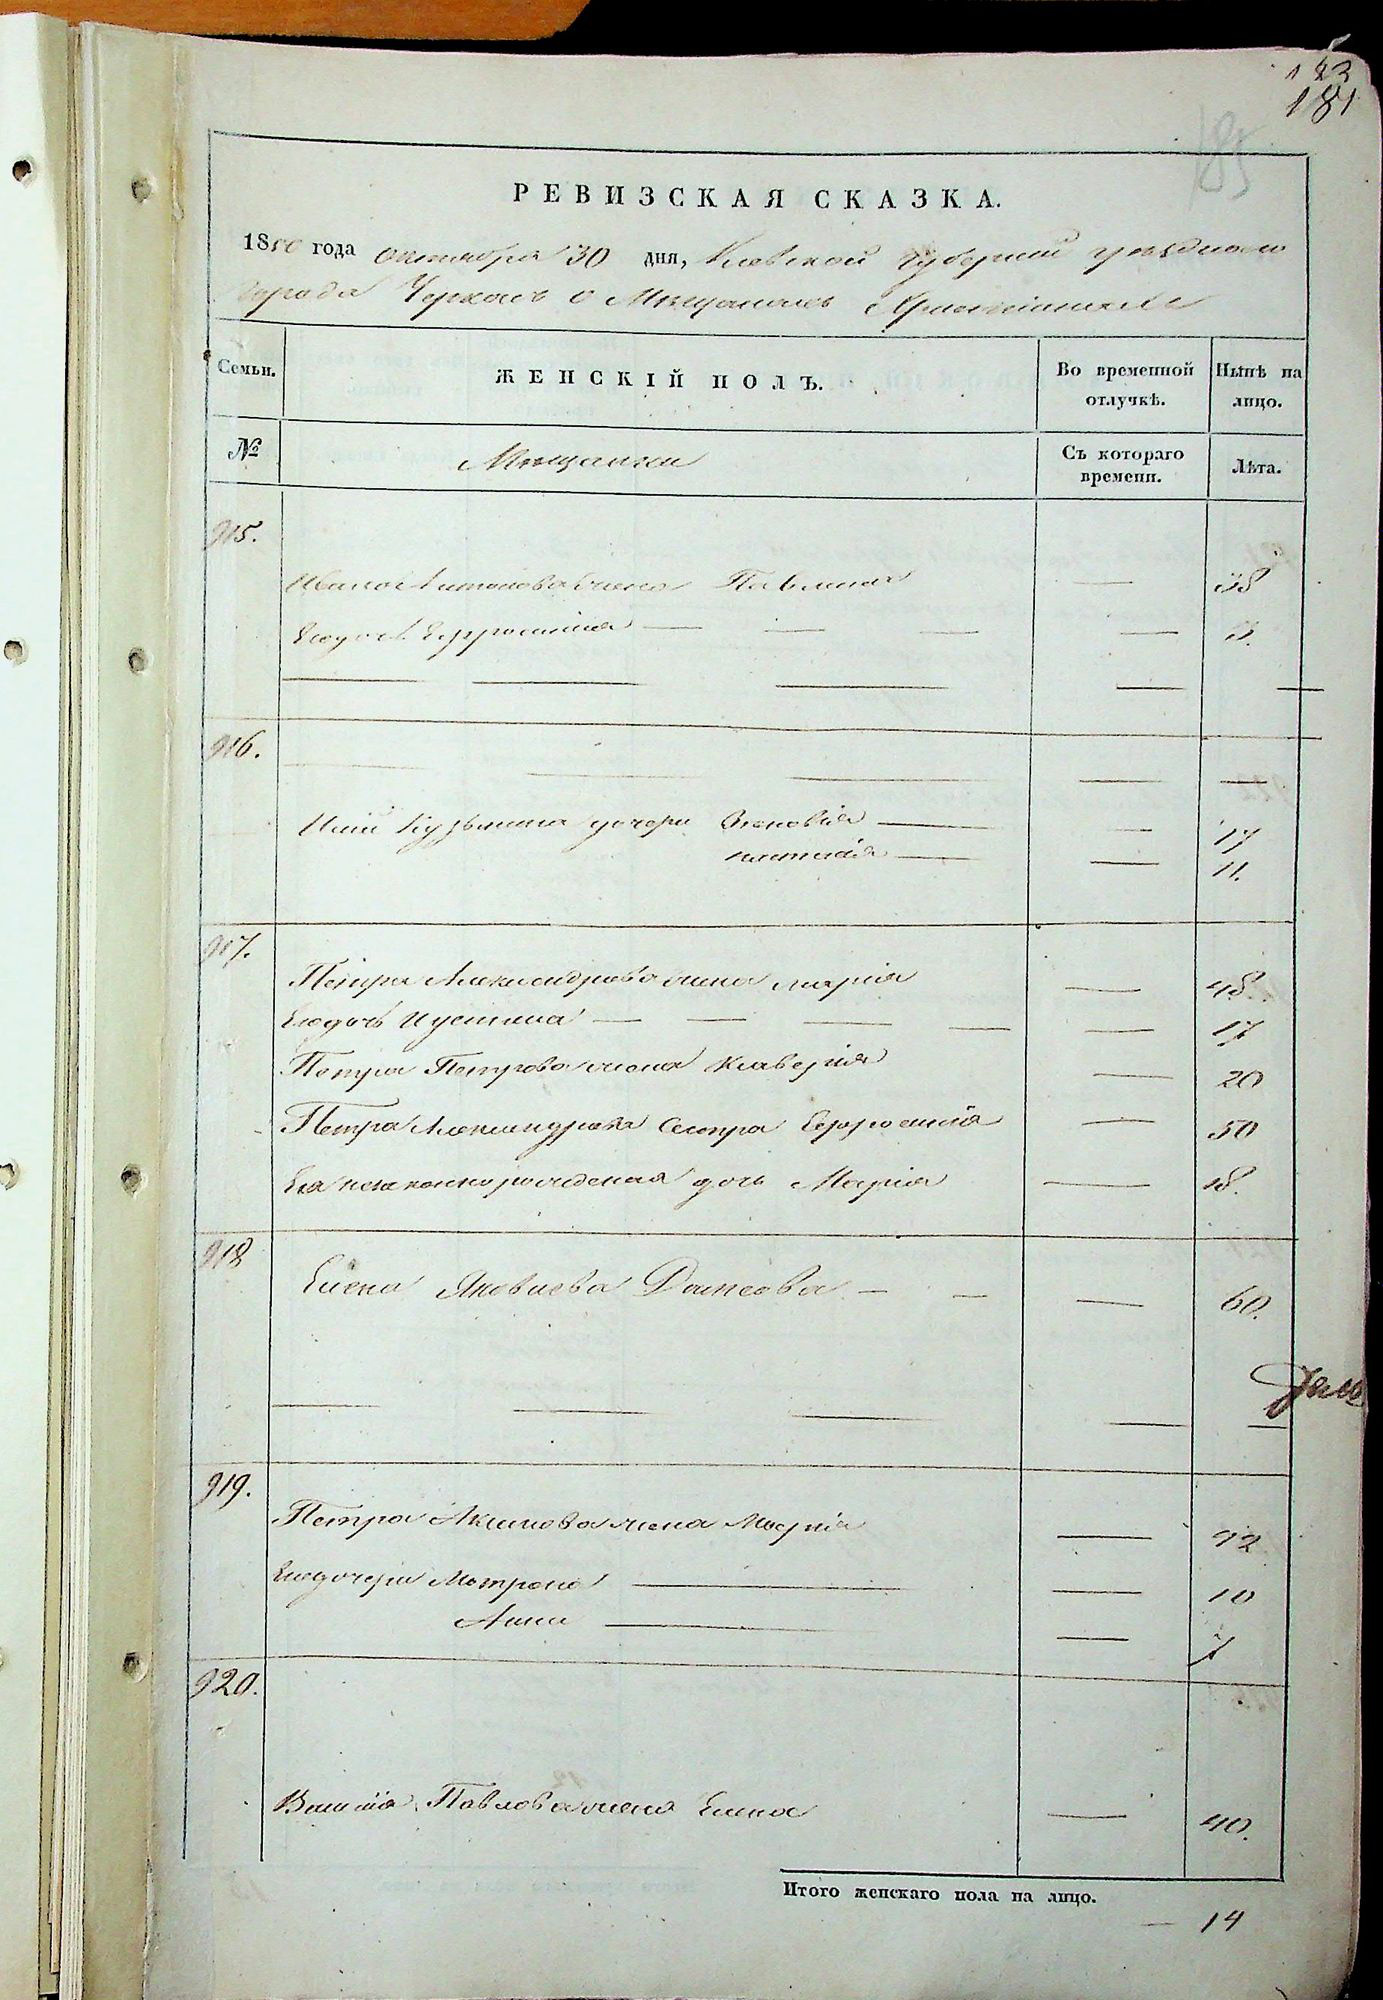 123
181
185
РЕВИЗСКАЯ СКАЗКА.
1850 года октября 30 дня, Киевской Губернии уѣзднаго
города Черкасъ о Мѣщанахъ Христіанахъ
Семьи.
ЖЕНСКІЙ ПОЛЪ.
Во временной отлучкѣ.
Нынѣ на лицо.
№
Мѣщанки
Съ котораго времени.
Лѣта.
915.
Ивана Антонова жена Павлина — 38
Егодочь Ефросинія — 3.
916.
Кузьмина дочери Зеновія — 17
11.
917.
Петра Александрова жена Марія — 48.
Егодочь Иустина — 17
Петра Петрова жена Ксаверія — 20
Петра Александрова сестра Ефросинія — 50
Ея незаконнорожденая дочь Марія — 18.
918
Елена Яковлева — 60.
919.
Петра Акимова жена Марія — 42
Егодочери Матрона — 10
Анна — 7
920.
Василія Павлова жена Елена — 40.
Итого женскаго пола на лицо.
— 14